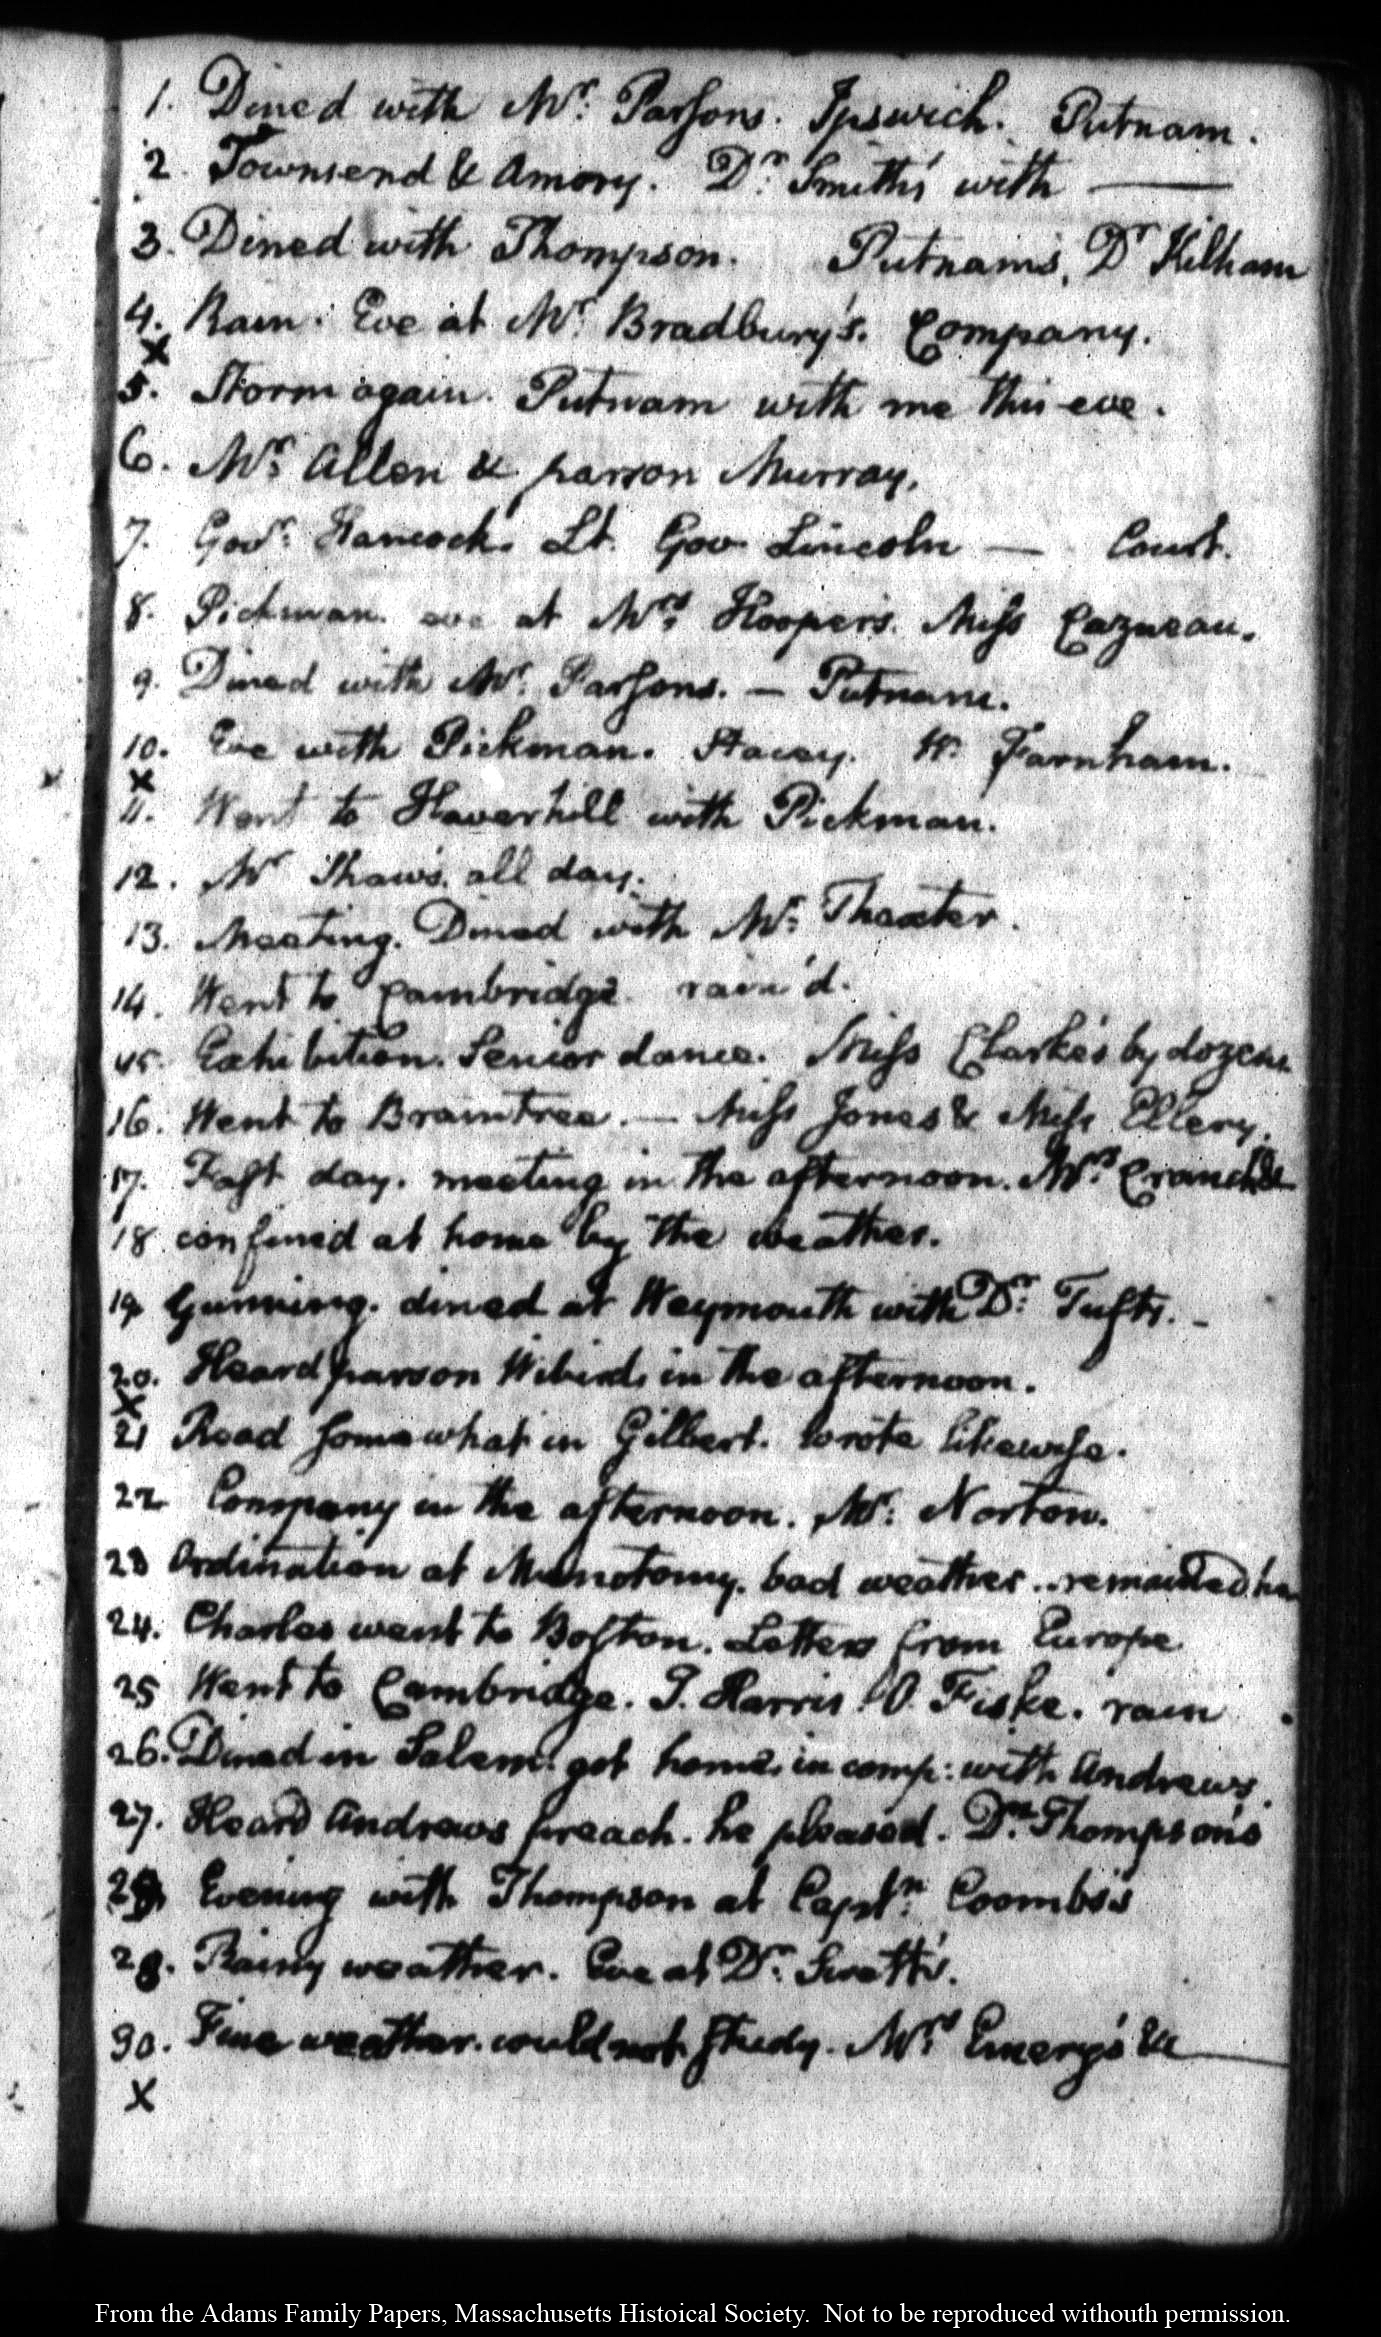 1. Dined with Mr. Parsons. Ipswich. Putnam.
2. Townsend & Amory. Dr. Smith's with ———
3. Dined with Thompson. Putnam's, Dr Kilham
4. Rain. Eve at Mr. Bradbury's. Company.
X
5. Storm again. Putnam with me this eve.
6. Mr. Allen & parson Murray.
7. Govr. Hancock. Lt. Gov Lincoln — Court.
8. Pickman. eve at Mrs. Hooper's. Miss Cazneau.
9. Dined with Mr. Parsons. — Putnam.
10. Eve with Pickman. Stacey. W. Farnham.
X
11. Went to Haverhill with Pickman.
12. Mr Shaw's. all day.
13. Meeting. Dined with Mr. Thaxter.
14. Went to Cambridge. rain'd.
15. Exhibition. Senior dance. Miss Clarke's by dozens
16. Went to Braintree. — Miss Jones & Miss Ellery.
17. Fast day. meeting in the afternoon. Mrs. Cranch &c
18. confined at home by the weather.
19. Gunning. dined at Weymouth with Dr. Tufts. —
20. Heard parson Wibird. in the afternoon.
X
21 Read somewhat in Gilbert. wrote likewise.
22 Company in the afternoon. Mr. Norton.
23 Ordination at Menotomy. bad weather.. remained
24. Charles went to Boston. Letters from Europe
25 Went to Cambridge. T. Harris. O. Fiske. rain .
26. Dined in Salem. got home. in comp: with Andrews.
27. Heard Andrews preach. he pleased. Dn. Thompson's
28 Evening with Thompson at Captn. Coombs's
29. Rainy weather. Eve at Dr. Swett's.
30. Fine weather. could not study. Mrs Emery's &c ——
X
From the Adams Family Papers, Massachusetts Histoical Society. Not to be reproduced withouth permission.